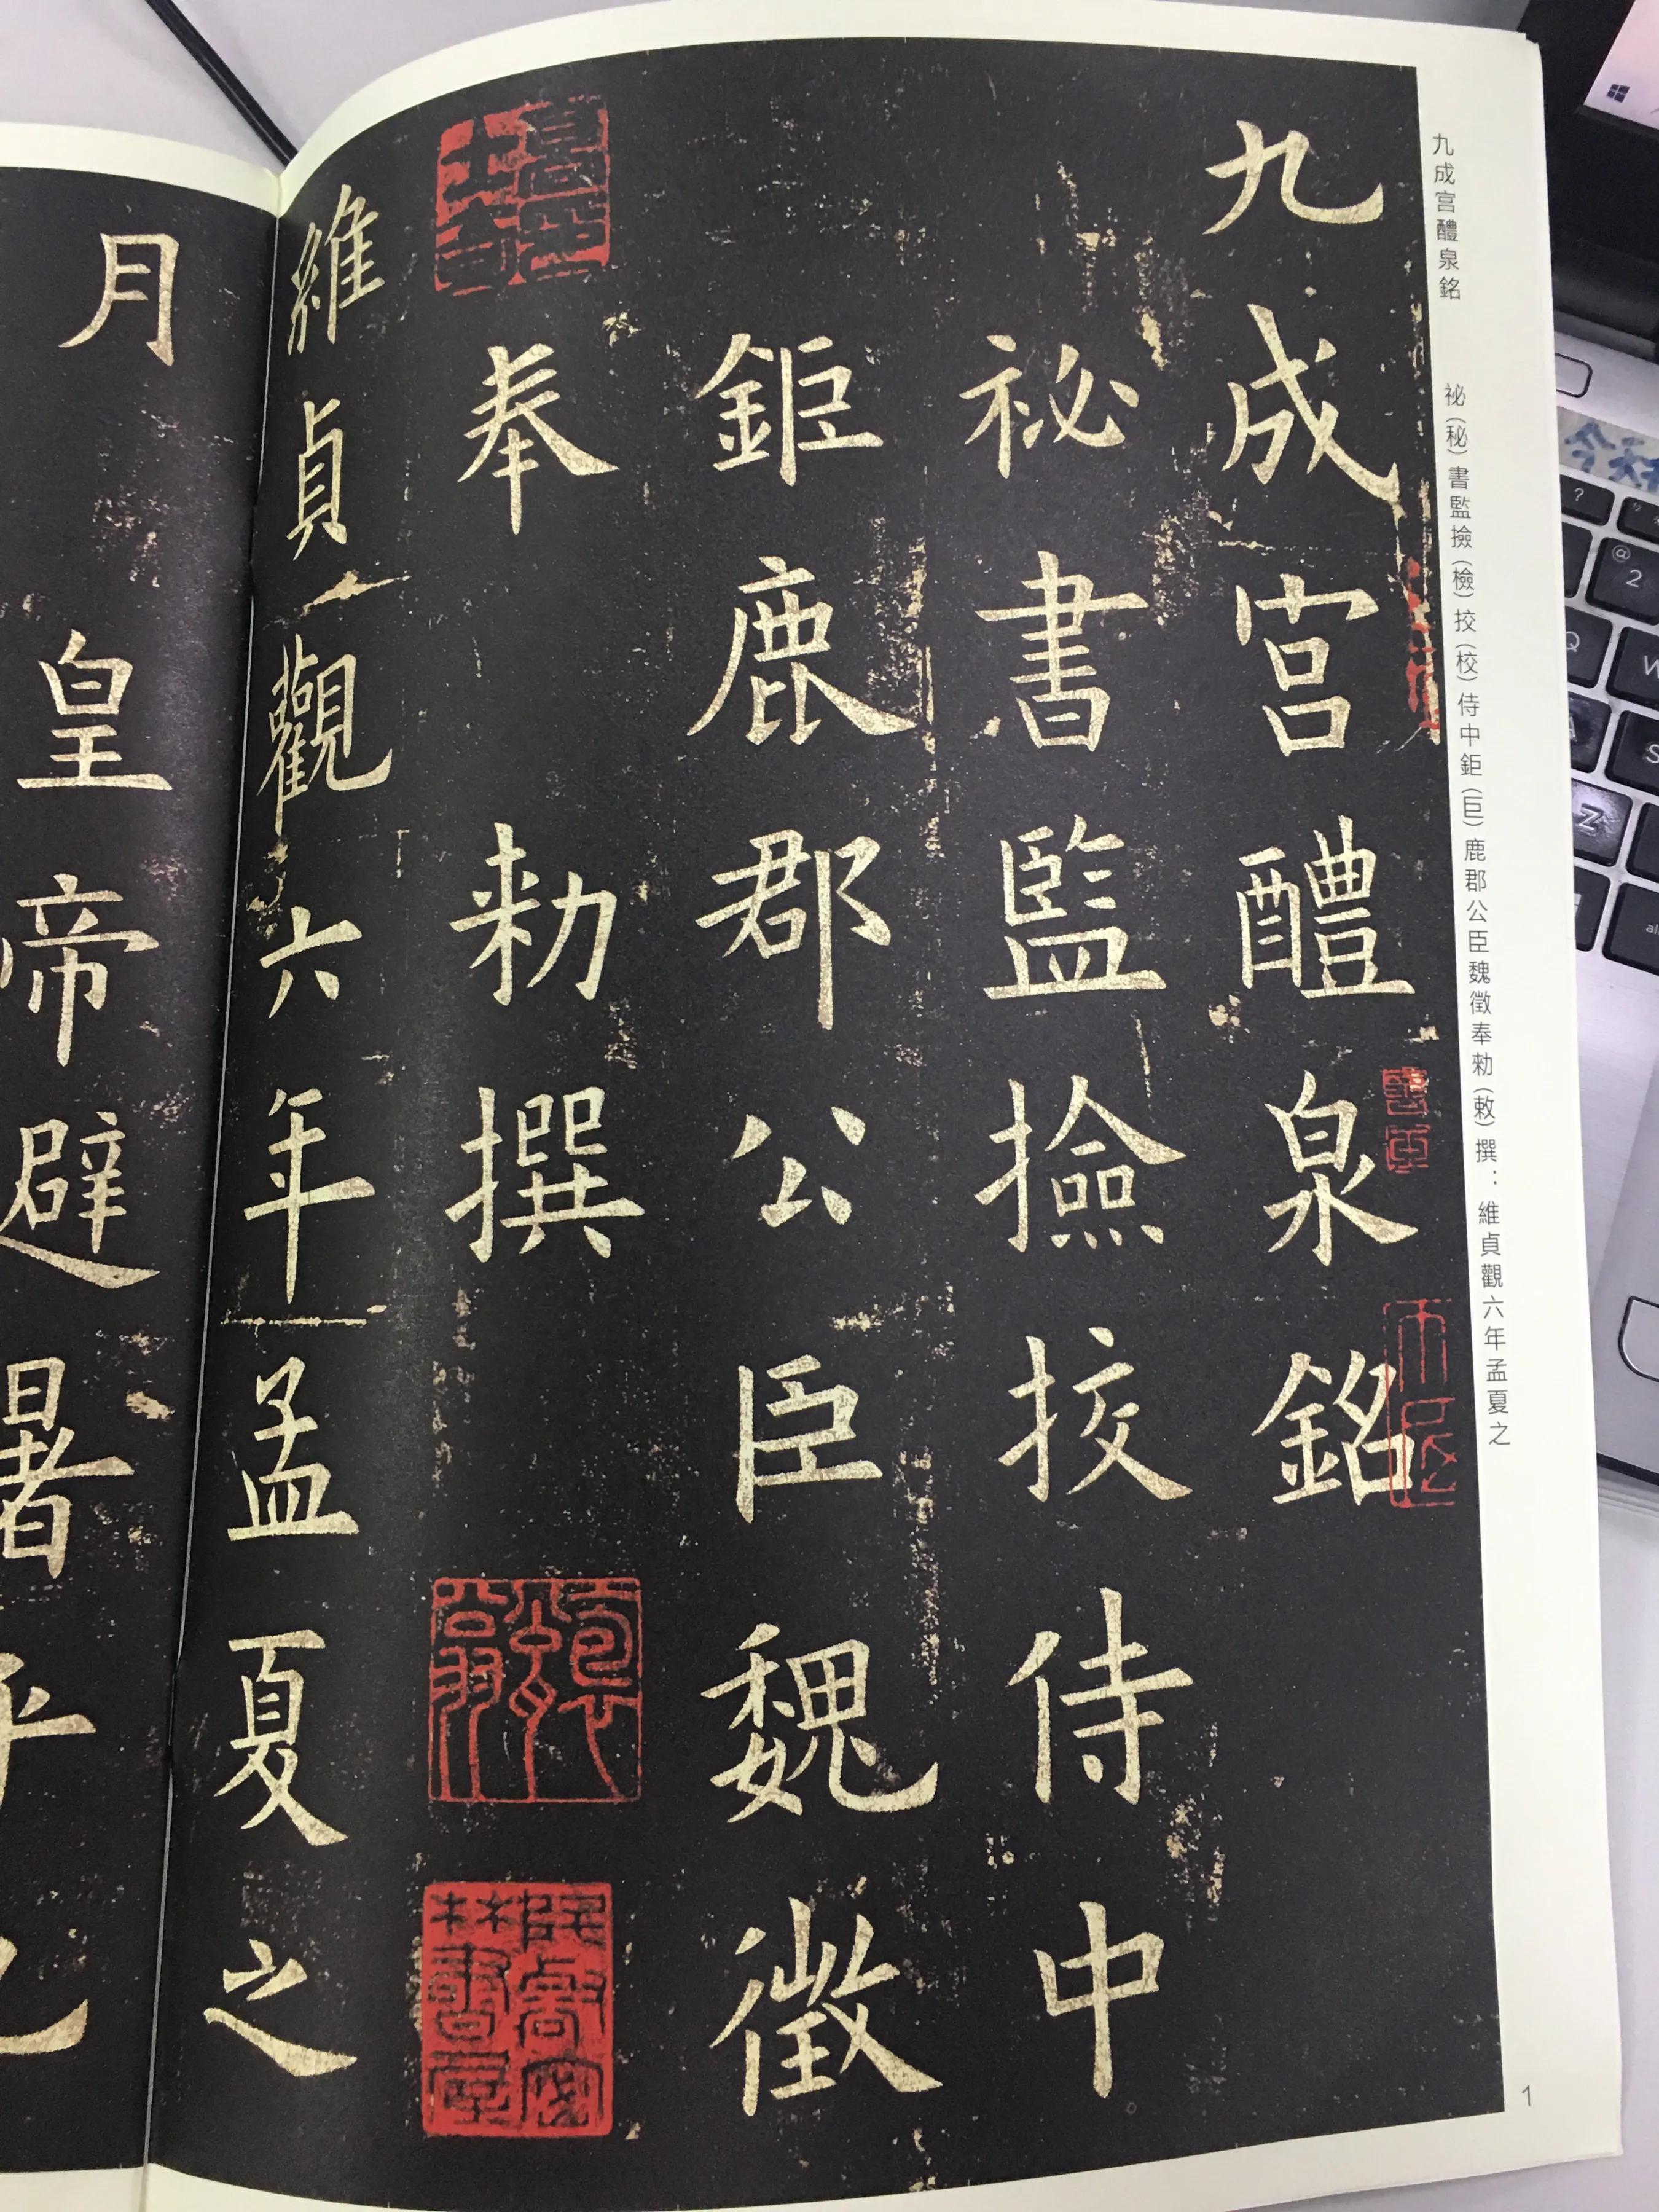 九成宮醴泉銘
祕書監撿挍侍中
鉅鹿郡公臣魏徵
奉勑撰
維貞觀六年孟夏之
月皇帝避暑乎
九成宮醴泉銘 祕（秘）書監撿（檢）挍（校）侍中鉅（巨）鹿郡公臣魏徵奉勑（敕）撰：維貞觀六年孟夏之
1